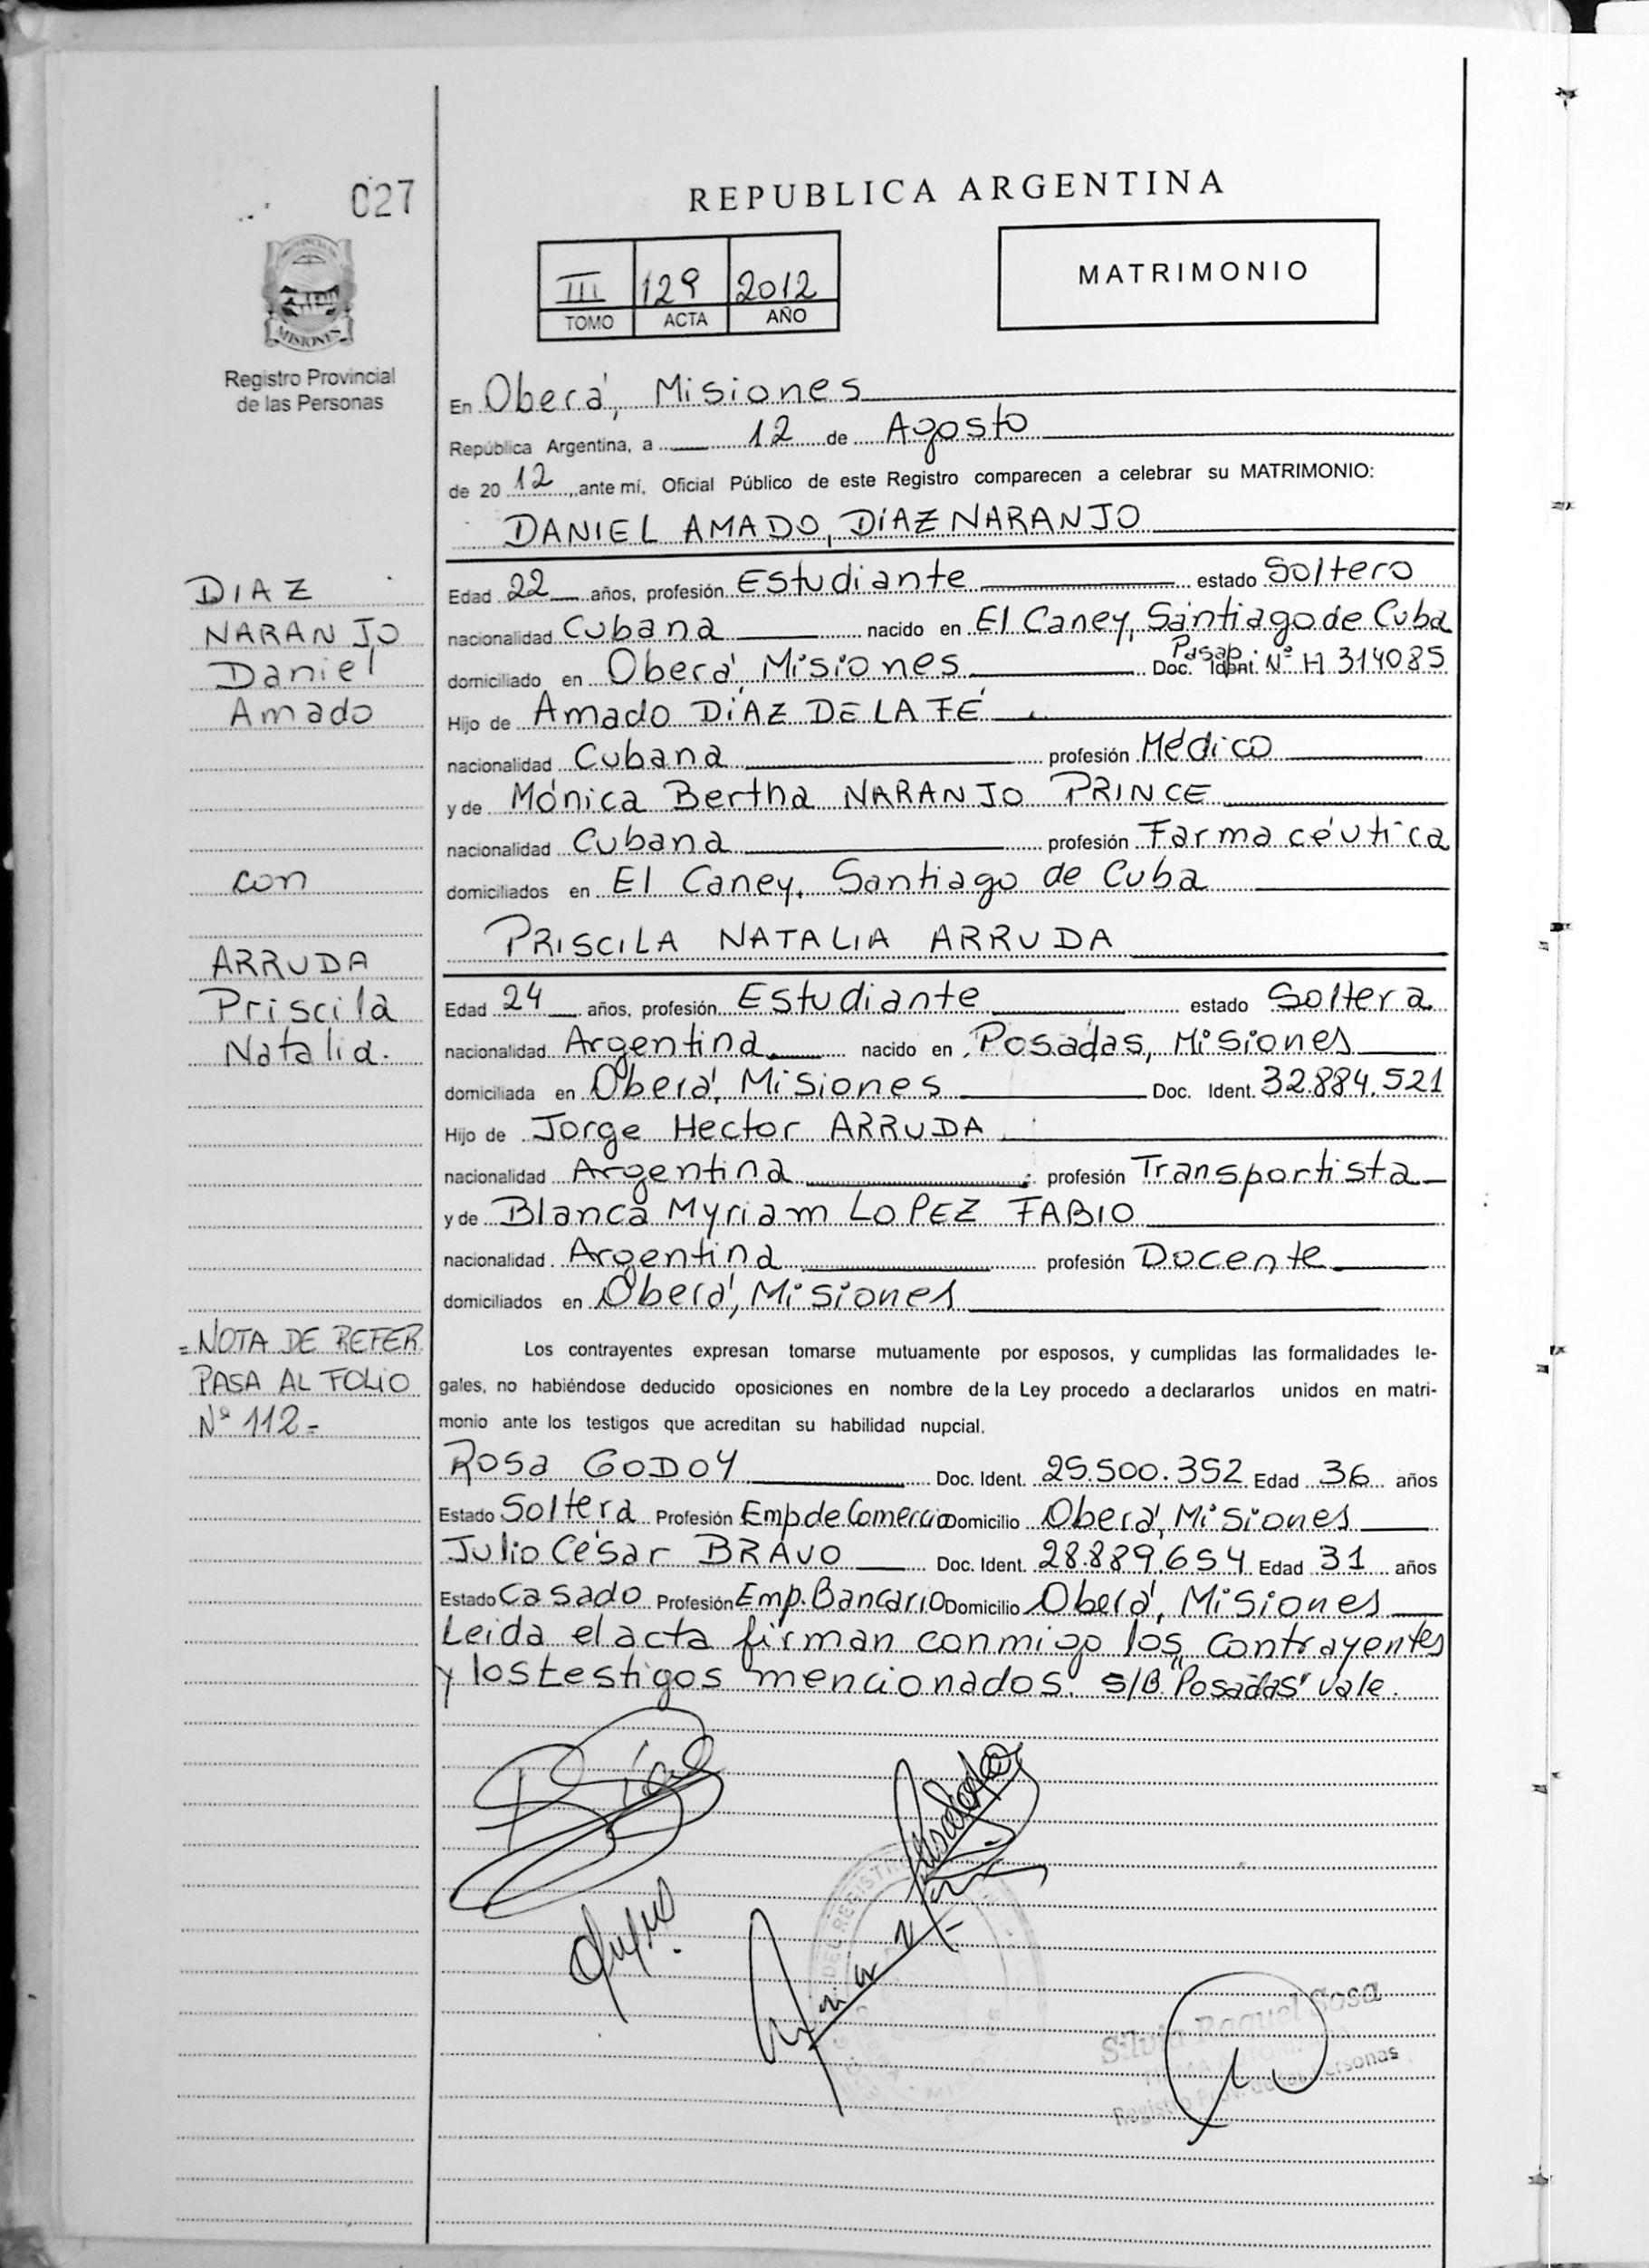 027
REPUBLICA ARGENTINA
III 129 2012
TOMO ACTA AÑO
MATRIMONIO
MISIONES
Registro Provincial
de las Personas
En Oberá, Misiones
República Argentina, a 12 de Agosto
de 20 12, ante mí, Oficial Público de este Registro comparecen a celebrar su MATRIMONIO:
DANIEL AMADO, DÍAZ NARANJO
DIAZ
NARANJO
Daniel
Amado
con
ARRUDA
Priscila
Natalia.
Edad 22 años, profesión Estudiante estado Soltero
nacionalidad Cubana nacido en El Caney, Santiago de Cuba
domiciliado en Oberá, Misiones Doc. Ident. Pasap. Nº H 314085
Hijo de Amado DÍAZ DE LA FÉ
nacionalidad Cubana profesión Médico
y de Mónica Bertha NARANJO PRINCE
nacionalidad Cubana profesión Farmacéutica
domiciliados en El Caney, Santiago de Cuba
PRISCILA NATALIA ARRUDA
Edad 24 años, profesión Estudiante estado Soltera
nacionalidad Argentina nacido en Posadas, Misiones
domiciliada en Oberá, Misiones Doc. Ident. 32.884.521
Hijo de Jorge Hector ARRUDA
nacionalidad Argentina profesión Transportista
y de Blanca Myriam LOPEZ FABIO
nacionalidad Argentina profesión Docente
domiciliados en Oberá, Misiones
= NOTA DE REFER
PASA AL FOLIO
Nº 112 =
Los contrayentes expresan tomarse mutuamente por esposos, y cumplidas las formalidades le-
gales, no habiéndose deducido oposiciones en nombre de la Ley procedo a declararlos unidos en matri-
monio ante los testigos que acreditan su habilidad nupcial.
Rosa GODOY Doc. Ident. 25.500.352 Edad 36 años
Estado Soltera Profesión Emp. de Comercio Domicilio Oberá, Misiones
Julio César BRAVO Doc. Ident. 28.889.654 Edad 31 años
Estado Casado Profesión Emp. Bancario Domicilio Oberá, Misiones
Leida el acta firman conmigo los contrayentes
y los testigos mencionados. S/B "Posadas" vale.
Silvia Raquel Sosa